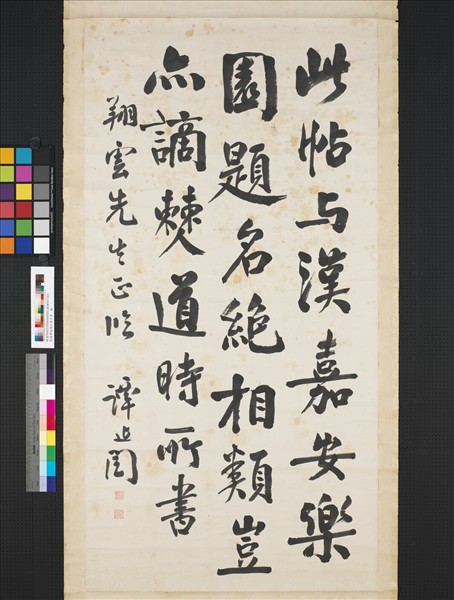 此帖与漢嘉安樂
園題名絕相類豈
亦謫僰道時所書
翔雲先生正臨
譚延闓